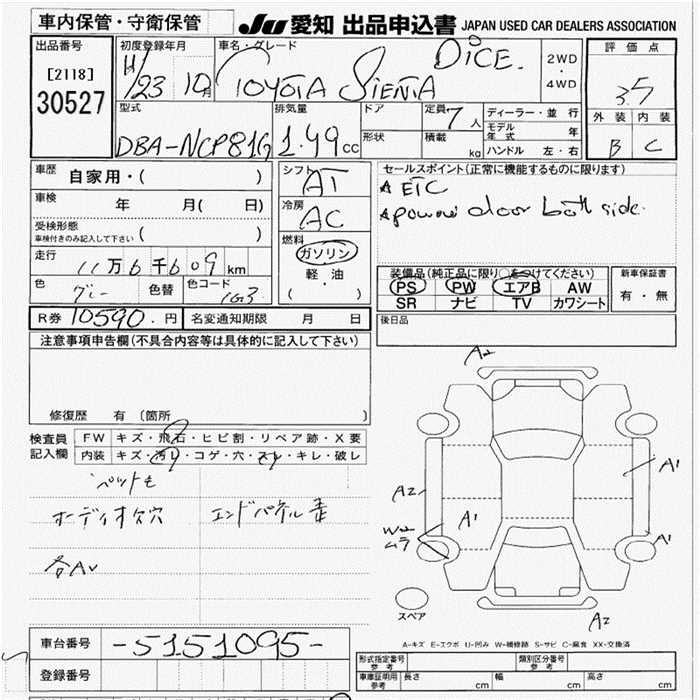 車内保管・守衛保管 JU 愛知 出品申込書 JAPAN USED CAR DEALERS ASSOCIATION
出品番号 [2118] 30527
初度登録年月 H/23 10月
車名・グレード TOYOTA SIENTA DICE.
2WD・4WD
評価点 3.5
外装 内装
B C
型式 DBA-NCP81G
排気量 1.49cc
ドア 形状
定員 7人 積載 kg
ディーラー・並行
モデル年式 年
ハンドル 左・右
車歴 自家用・( )
車検 年 月( 日)
受検形態 車検付きのみ記入して下さい ( )
走行 11万6千609km
色 グレー 色替 色コード 1G3
シフト AT
冷房 AC
燃料 ガソリン 軽・油 ( )
セールスポイント(正常に機能するものに限ります)
ETC
power door both side.
装備品(純正品に限り○をつけてください)
PS PW エアB AW
SR ナビ TV カワシート
新車保証書 有・無
R券 10590.円 名変通知期限 月 日
後日品
注意事項申告欄(不具合内容等は具体的に記入して下さい)
修復歴 有 (箇所 )
検査員記入欄
FW キズ・飛石・ヒビ割・リペア跡・X要
内装 キズ・汚レ・コゲ・穴・スレ・キレ・破レ
オーディオ欠穴
A2
A2
A1
A1
W2
ムラ
A1
A2
スペア
A-キズ E-エクボ U-凹み W-補修跡 S-サビ C-腐食 XX-交換済
車台番号 -5151095-
登録番号
形式指定番号 参考 類別区分番号 参考
車庫証明用 参考 長さ cm 幅 cm 高さ cm